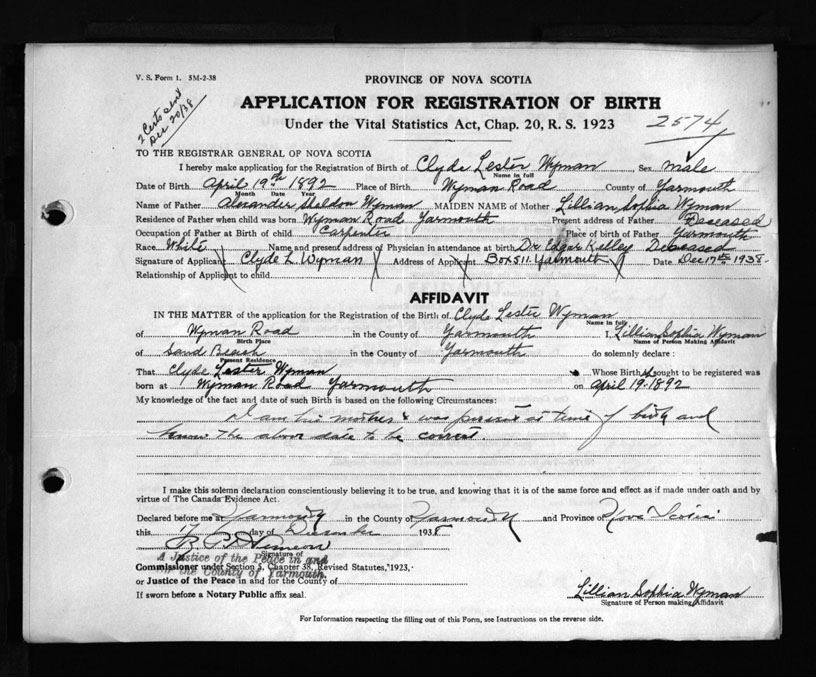 V. S. Form 1. 5M-2-38
PROVINCE OF NOVA SCOTIA
2 Certs sent
Dec 20/38
APPLICATION FOR REGISTRATION OF BIRTH
Under the Vital Statistics Act, Chap. 20, R. S. 1923
2574
TO THE REGISTRAR GENERAL OF NOVA SCOTIA
I hereby make application for the Registration of Birth of Clyde Lester Wyman Sex male
Name in full
Date of Birth April 19th 1892 Place of Birth Wyman Road County of Yarmouth
Month Date Year
Name of Father Alexander Sheldon Wyman MAIDEN NAME of Mother Lillian Sophia Wyman
Residence of Father when child was born Wyman Road Yarmouth Present address of Father Deceased
Occupation of Father at Birth of child Carpenter Place of birth of Father Yarmouth
Race White Name and present address of Physician in attendance at birth Dr. Edgar Kelley Deceased
Signature of Applicant Clyde L. Wyman Address of Applicant Box 511. Yarmouth Date Dec 17th 1938.
Relationship of Applicant to child
AFFIDAVIT
IN THE MATTER of the application for the Registration of the Birth of Clyde Lester Wyman
Name in full
of Wyman Road in the County of Yarmouth I, Lillian Sophia Wyman
Birth Place Name of Person Making Affidavit
of Sand Beach in the County of Yarmouth do solemnly declare :
Present Residence
That Clyde Lester Wyman Whose Birth sought to be registered was
born at Wyman Road Yarmouth on April 19. 1892
My knowledge of the fact and date of such Birth is based on the following Circumstances:
I am his mother & was present at time of birth and
know the above date to be correct.
I make this solemn declaration conscientiously believing it to be true, and knowing that it is of the same force and effect as if made under oath and by
virtue of The Canada Evidence Act.
Declared before me at Yarmouth in the County of Yarmouth and Province of Nova Scotia
this 17 day of December 1938
Signature of
A Justice of the Peace in and
for the County of Yarmouth.
Commissioner under Section 5, Chapter 38, Revised Statutes, 1923,
or Justice of the Peace in and for the County of
If sworn before a Notary Public affix seal.
Lillian Sophia Wyman
Signature of Person making Affidavit
For Information respecting the filling out of this Form, see Instructions on the reverse side.